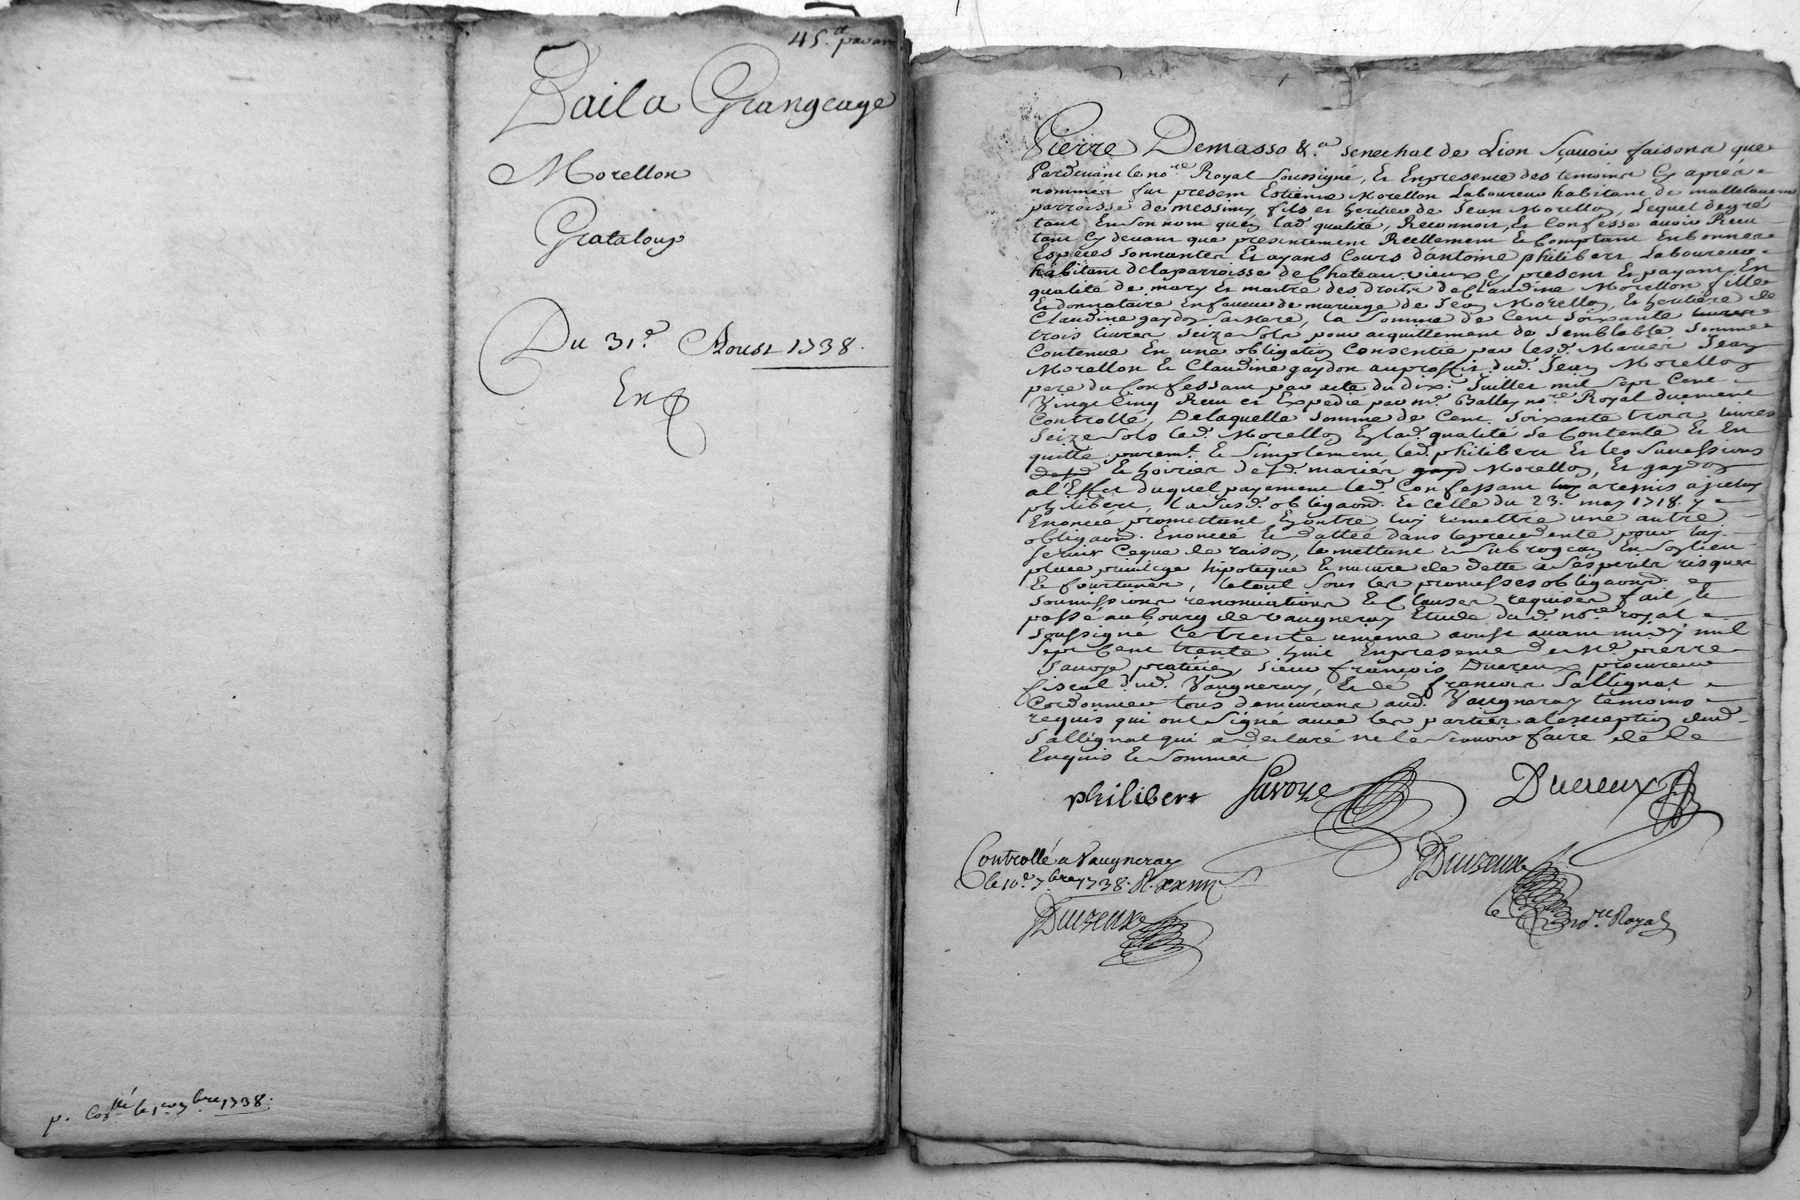 45.e
Bail a Grangeage
Morellon
Grataloup
Du 31.e Aoust 1738.
Exp
p. Coll.né le 1er 7bre 1738.
Pierre Demasso &.a senechal de Lion Sçauoir faisons que
Pardeuant le no.re Royal Soussigné, Et Enpresence des temoins Cy aprés
nommés fut present Estienne Morellon Laboureur habitant de malletauerne
parroisse de messimy fils et heritier de Jean Morellon, Lequel de gré
tant En son nom qu'en lad. qualité, Reconnoit, et Confesse auoir Receu
tant Cy deuant que presentement Reellement Et Comptant En bonnes
Especes sonnantes Et ayans Cours d'antoine philibert Laboureur
habitant de la parroisse de Chateauvieux Cy present Et payant En
qualité de mary Et maitre des droits de Claudine Morellon fille
Et donnataire En faueur de mariage de Jean Morellon, Et heritiere de
Claudine gaydon Sa mere, la Somme de Cent Soixante livres
trois livres Seize Sols pour acquittement de Semblable Somme
Contenue En une obligation Consentie par lesd. Mariés Jean
Morellon Et Claudine gaydon au proffit dud. Jean Morellon
pere du Confessant par acte du dix.e Juillet mil Sept Cent
Vingt Cinq Receu et Expedié par m.e Balley no.re Royal duement
Controllé, De laquelle Somme de Cent Soixante trois livres
Seize Sols led. Morellon En lad. qualité Se Contente Et En
quitte purem.t Et Simplement led. philibert Et les Successions
desd Et hoiries desd. mariés gayd Morellon, Et gaydon
a l'Effet duquel payement led. Confessant luy a remis a jceluy
philibert, la susd. obligaon. Et Celle du 23.e may 1718. y
Enoncée promettant luy remettre une autre
obligaon. Enoncée Et dattée dans la precedente pour luy
Seruir Ce que de raison, le mettant Et Subrogeant En Son lieu
place priuilege hipoteque Et nature de dette a Ses perils risques
Et fourtunes, le tout Sous les promesses obligaons.
Soumissions renonciations Et Clauses requises fait, Et
passé au bourg de Vaugneray Etude dud. no.re royal
Soussigné Le trente unieme aoust auant midy mil
Sept Cent trente huit En presence de M.e pierre
Sauoye praticien, Sieur françois Ducreux procureur
fiscal dud. Vaugneray, Et de françois Sallignat
Cordonnier tous demeurans aud. Vaugneray temoins
requis qui ont Signé auec les parties a l'exception dud.
Sallignat qui a declaré ne le Scauoir faire de Ce
Enquis Et Sommé
philibert Savoye Ducreux
Controllé a Vaugneray
le 10.e 7bre 1738.
Ducreux
Ducreux
no.re Royal